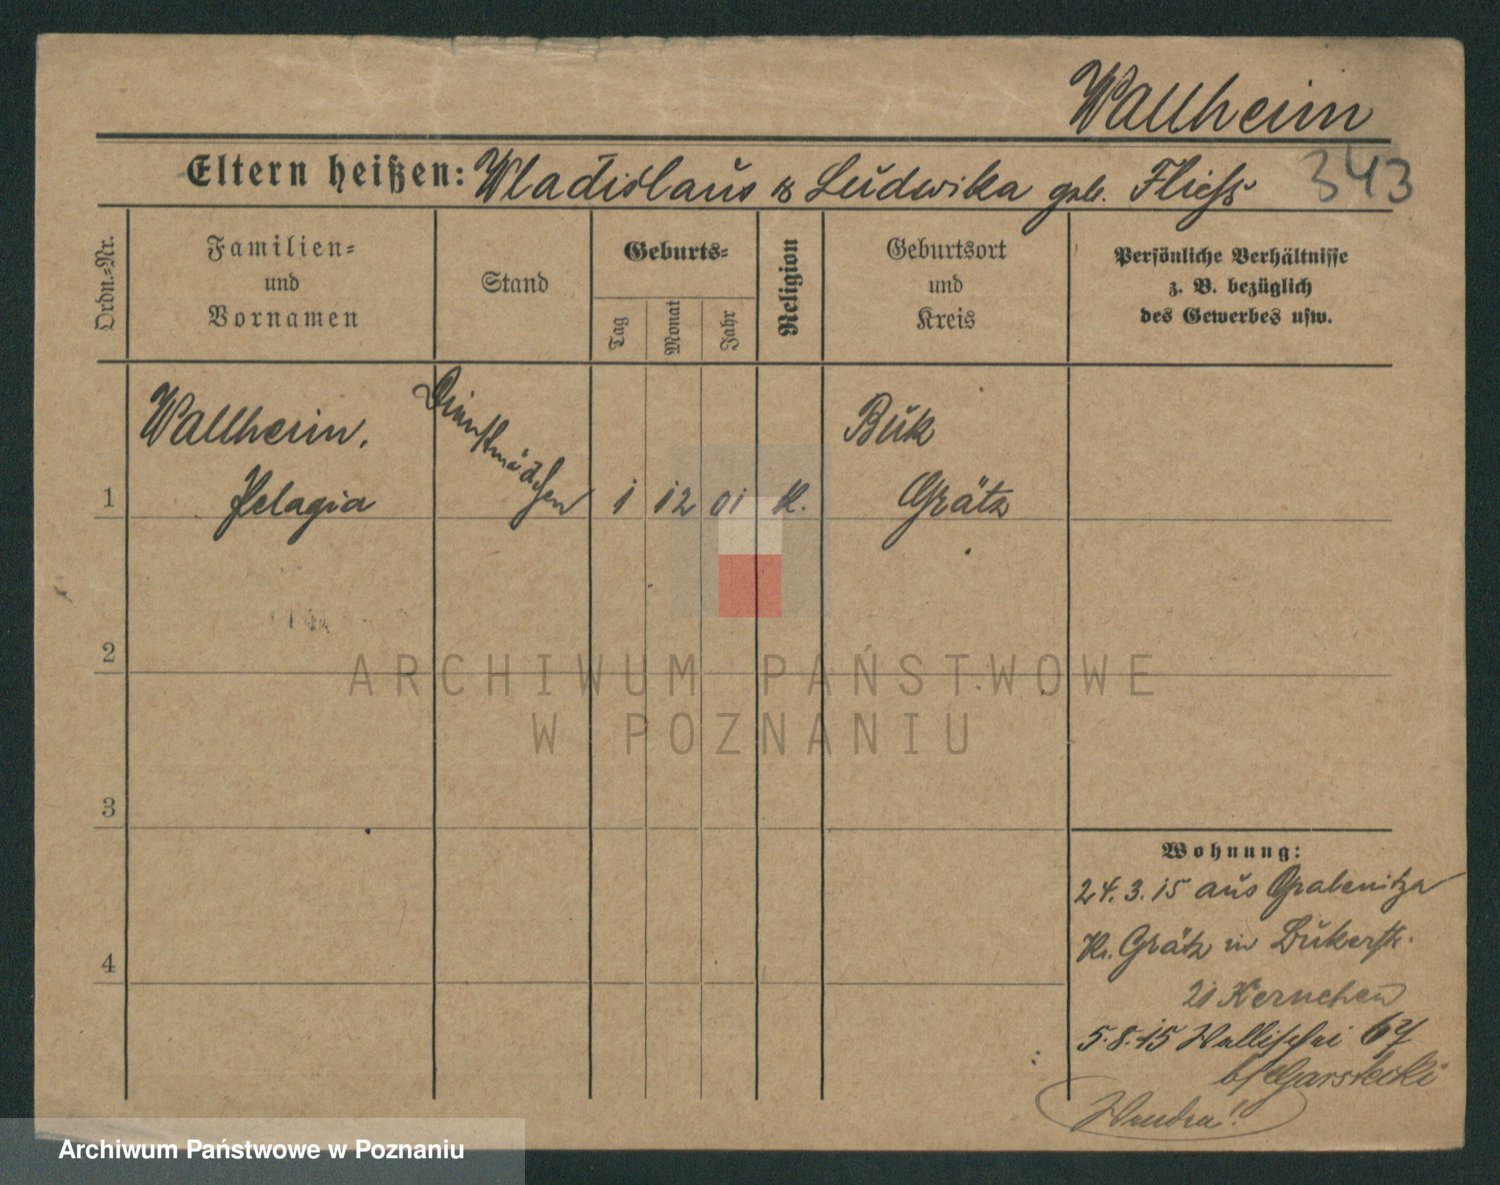 Wallheim
343
Eltern heißen: Wladislaus & Ludwika geb. Fliess
Ordn.=Nr.
Familien=
und
Vornamen
Stand
Geburts=
Tag
Monat
Jahr
Religion
Geburtsort
und
Kreis
Persönliche Verhältnisse
z. B. bezüglich
des Gewerbes usw.
1
Wallheim,
Pelagia
Dienstmädchen
1 12 01 K.
Buk
Grätz
2
3
4
Wohnung:
24. 3. 15 aus
Kr. Grätz in Bukerstr.
5.8.15 Wallischei 67
b/Garstecki
ARCHIWUM PAŃSTWOWE
W POZNANIU
Archiwum Państwowe w Poznaniu